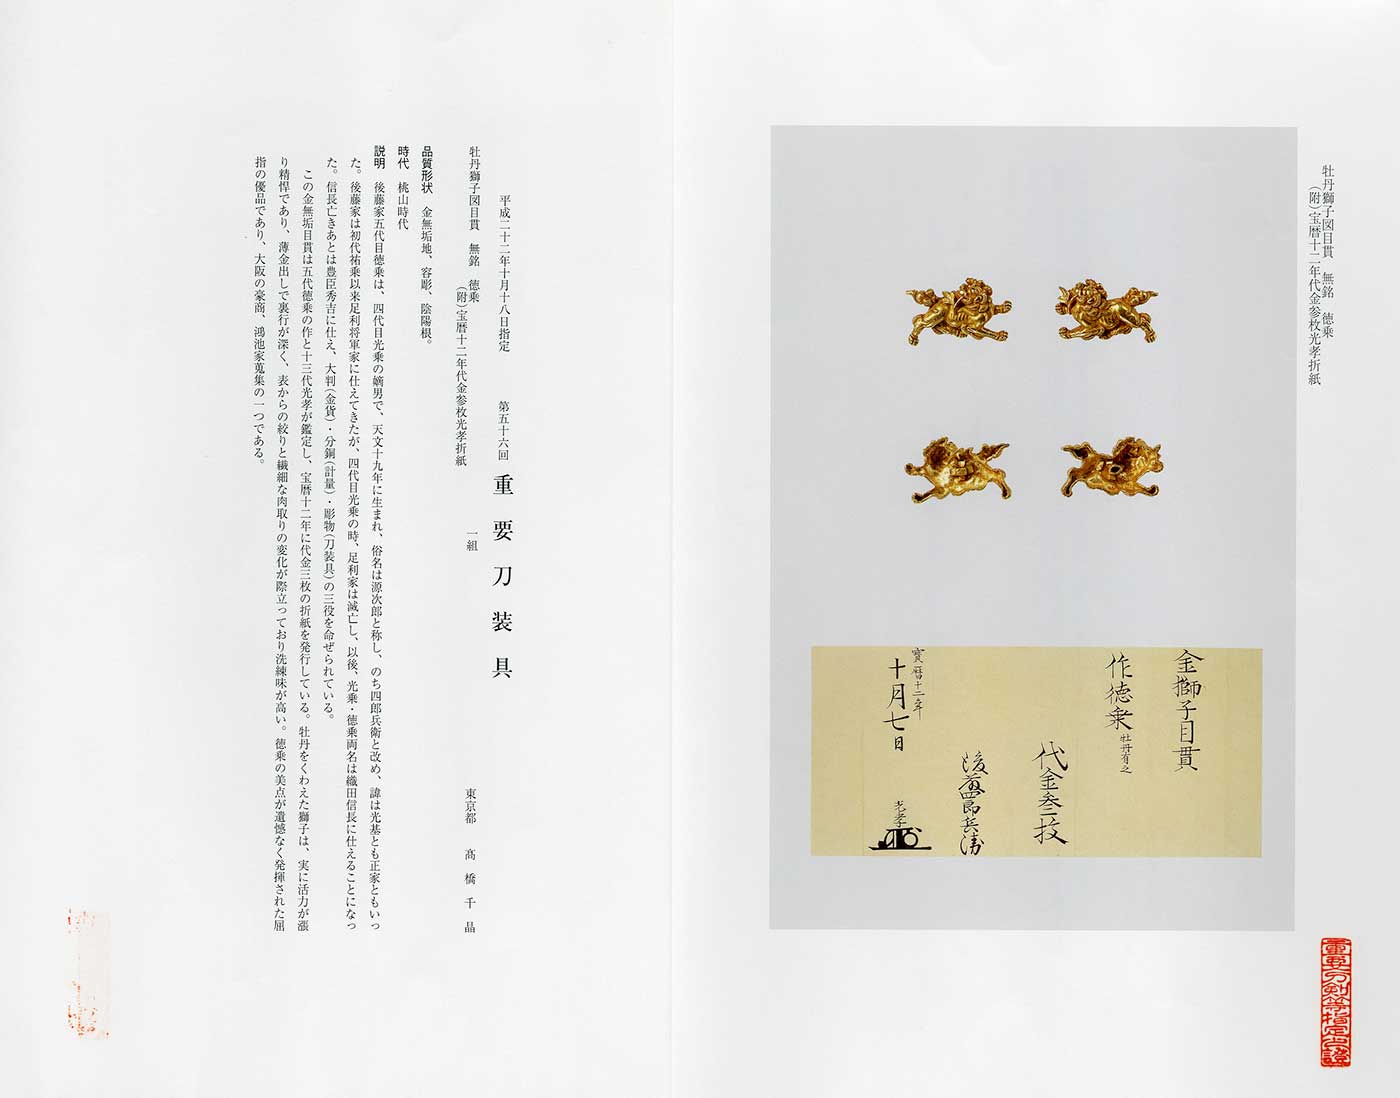 牡丹獅子図目貫　無銘　徳乗
（附）宝暦十二年代金参枚光孝折紙
金獅子目貫
作徳乗 牡丹有之
代金叁枚
後藤四郎兵衛
寳暦十二年
十月七日
光孝
重要刀剣等指定之證
平成二十二年十月十八日指定　第五十六回　重要刀装具
牡丹獅子図目貫　無銘　徳乗　一組　東京都　髙橋千晶
（附）宝暦十二年代金参枚光孝折紙
品質形状　金無垢地、容彫、陰陽根。
時代　桃山時代
説明　後藤家五代目徳乗は、四代目光乗の嫡男で、天文十九年に生まれ、俗名は源次郎と称し、のち四郎兵衛と改め、諱は光基とも正家ともいっ
た。後藤家は初代祐乗以来足利将軍家に仕えてきたが、四代目光乗の時、足利家は滅亡し、以後、光乗・徳乗両名は織田信長に仕えることになっ
た。信長亡きあとは豊臣秀吉に仕え、大判（金貨）・分銅（計量）・彫物（刀装具）の三役を命ぜられている。
この金無垢目貫は五代徳乗の作と十三代光孝が鑑定し、宝暦十二年に代金三枚の折紙を発行している。牡丹をくわえた獅子は、実に活力が漲
り精悍であり、薄金出しで裏行が深く、表からの絞りと繊細な肉取りの変化が際立っており洗練味が高い。徳乗の美点が遺憾なく発揮された屈
指の優品であり、大阪の豪商、鴻池家蒐集の一つである。